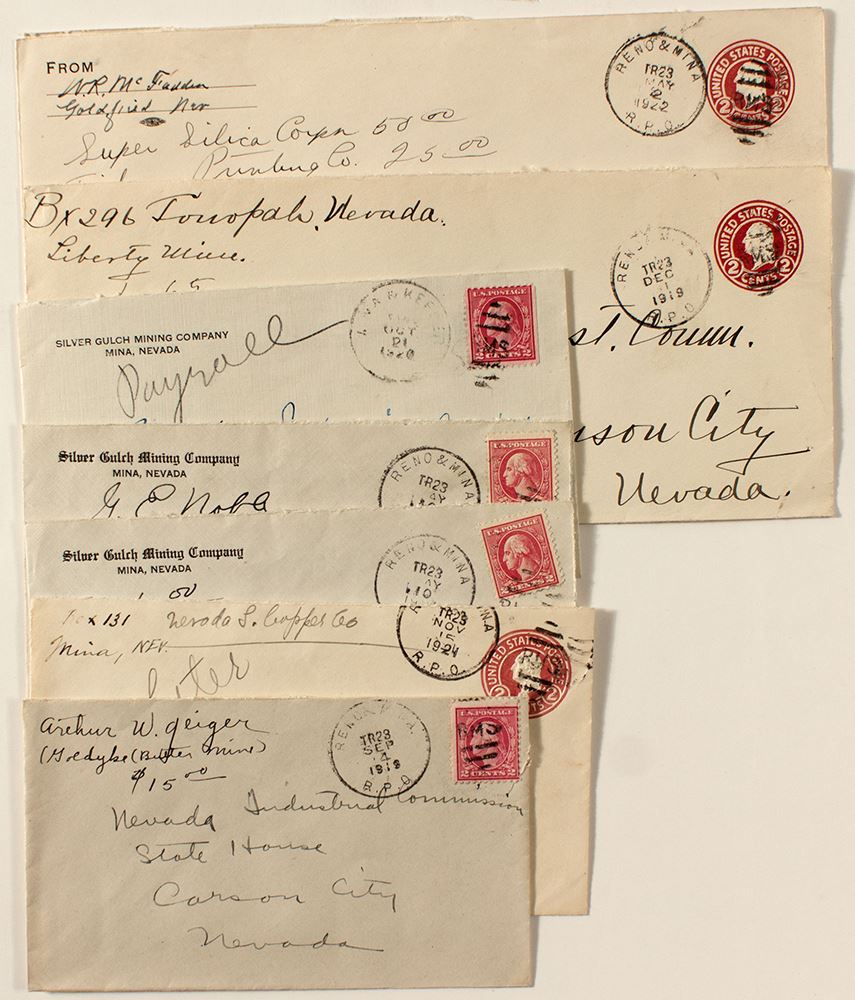 FROM
W.R. McFadden
Goldfield Nev
Super Silica Corpn 50 00
Printing Co. 25 00
RENO & MINA
TR23
MAY
2
1922
R.P.O.
UNITED STATES POSTAGE
2 CENTS 2
Bx 296 Tonopah, Nevada.
Liberty Mine.
RENO & MINA
TR23
DEC
1919
R.P.O.
UNITED STATES POSTAGE
2 CENTS 2
st. Comm.
son City
Nevada.
SILVER GULCH MINING COMPANY
MINA, NEVADA
Payroll
OCT
21
1920
U.S. POSTAGE
2 CENTS 2
Silver Gulch Mining Company
MINA, NEVADA
G. E. Nobl
RENO & MINA
TR23
U.S. POSTAGE
Silver Gulch Mining Company
MINA, NEVADA
00
RENO & MINA
TR23
MAY
10
U.S. POSTAGE
2
Box 131 Nevada S. Copper Co
Mina, NEV.
TR23
NOV
15
1921
R.P.O.
UNITED STATES POSTAGE
2
Arthur W. Geiger
(Goldyke (Buster Mine)
$15 00
RENO & MINA
TR23
SEP
4
1919
R.P.O.
RMS
2 CENTS 2
Nevada Industrial Commission
State House
Carson City
Nevada